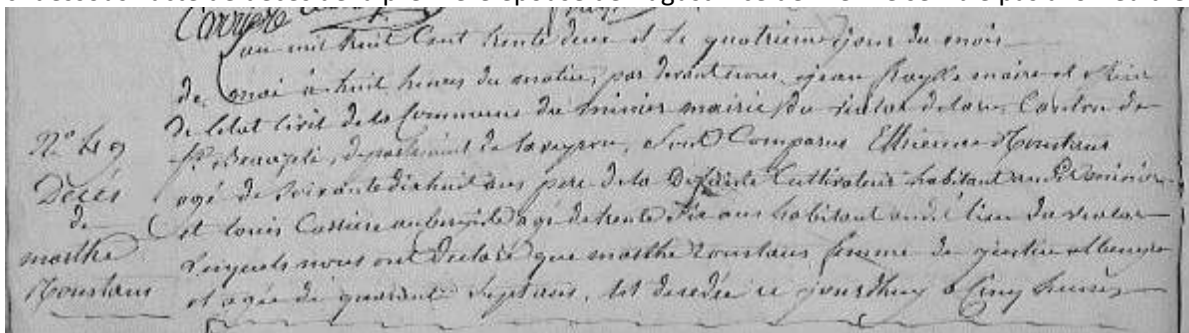 Carrière
an mil huit Cent trente deux et le quatrieme jour du mois
de mai à huit heures du matin, par devant nous, jean maire et
De létat Civil de la Commune du minier mairie du viala Canton de
St Beauzeli, departement de laveyron, Sont Comparus Ethienne Roustans
agé de Soixante dix huit ans pere de la Defunte Cultivateur habitant minier
et louis Carriere aubergiste agé de trente Six ans habitant lieu du viala
Lesquels nous ont Declaré que marthe roustans femme de
et agée de quarante Sept ans, Est decedée ce jourdhuy a Cinq heures
N° 49
Décés
de
marthe
Roustans